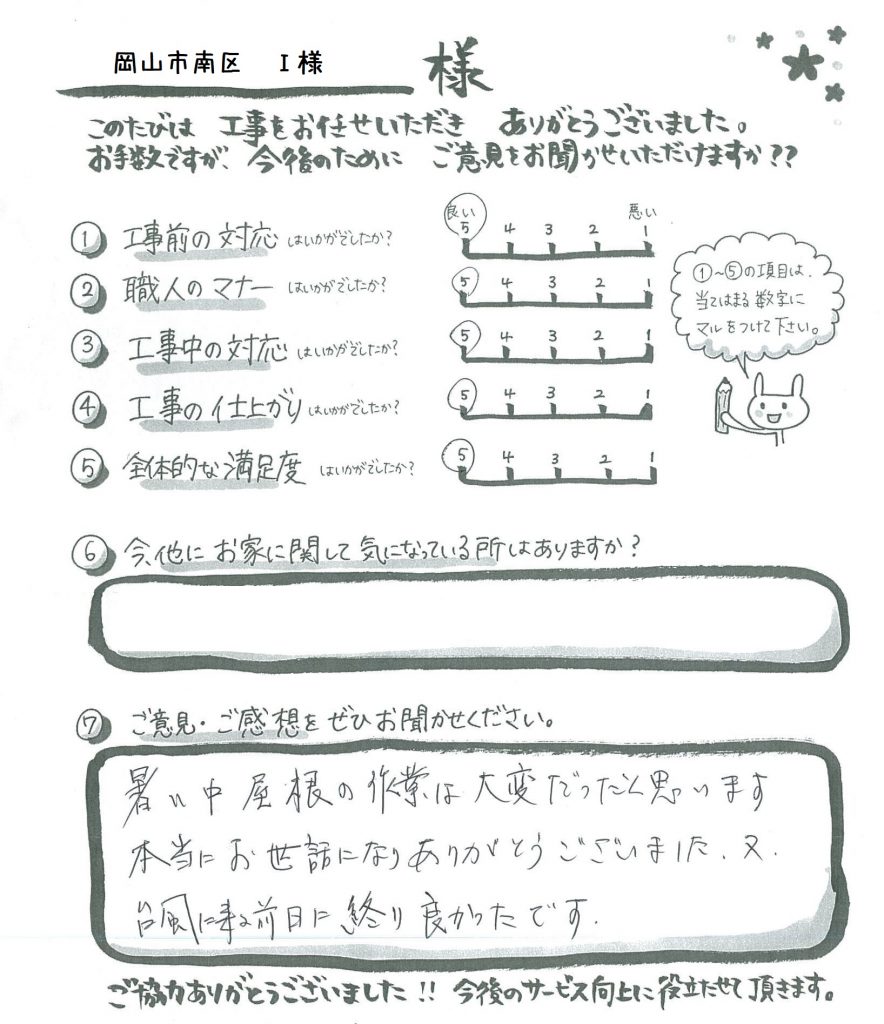 岡山市南区 I様 様
このたびは 工事をお任せいただき ありがとうございました。
お手数ですが、今後のために ご意見をお聞かせいただけますか??
良い 悪い
① 工事前の対応 はいかがでしたか? 5 4 3 2 1
② 職人のマナー はいかがでしたか? 5 4 3 2 1
③ 工事中の対応 はいかがでしたか? 5 4 3 2 1
④ 工事の仕上がり はいかがでしたか? 5 4 3 2 1
⑤ 全体的な満足度 はいかがでしたか? 5 4 3 2 1
①~⑤の項目は、
当てはまる数字に
マルをつけて下さい。
⑥ 今、他にお家に関して気になっている所はありますか?
⑦ ご意見・ご感想をぜひお聞かせください。
暑い中屋根の作業は大変だったと思います
本当にお世話になりありがとうございました、又、
台風に来る前日に終り良かったです.
ご協力ありがとうございました!! 今後のサービス向上に役立たせて頂きます。